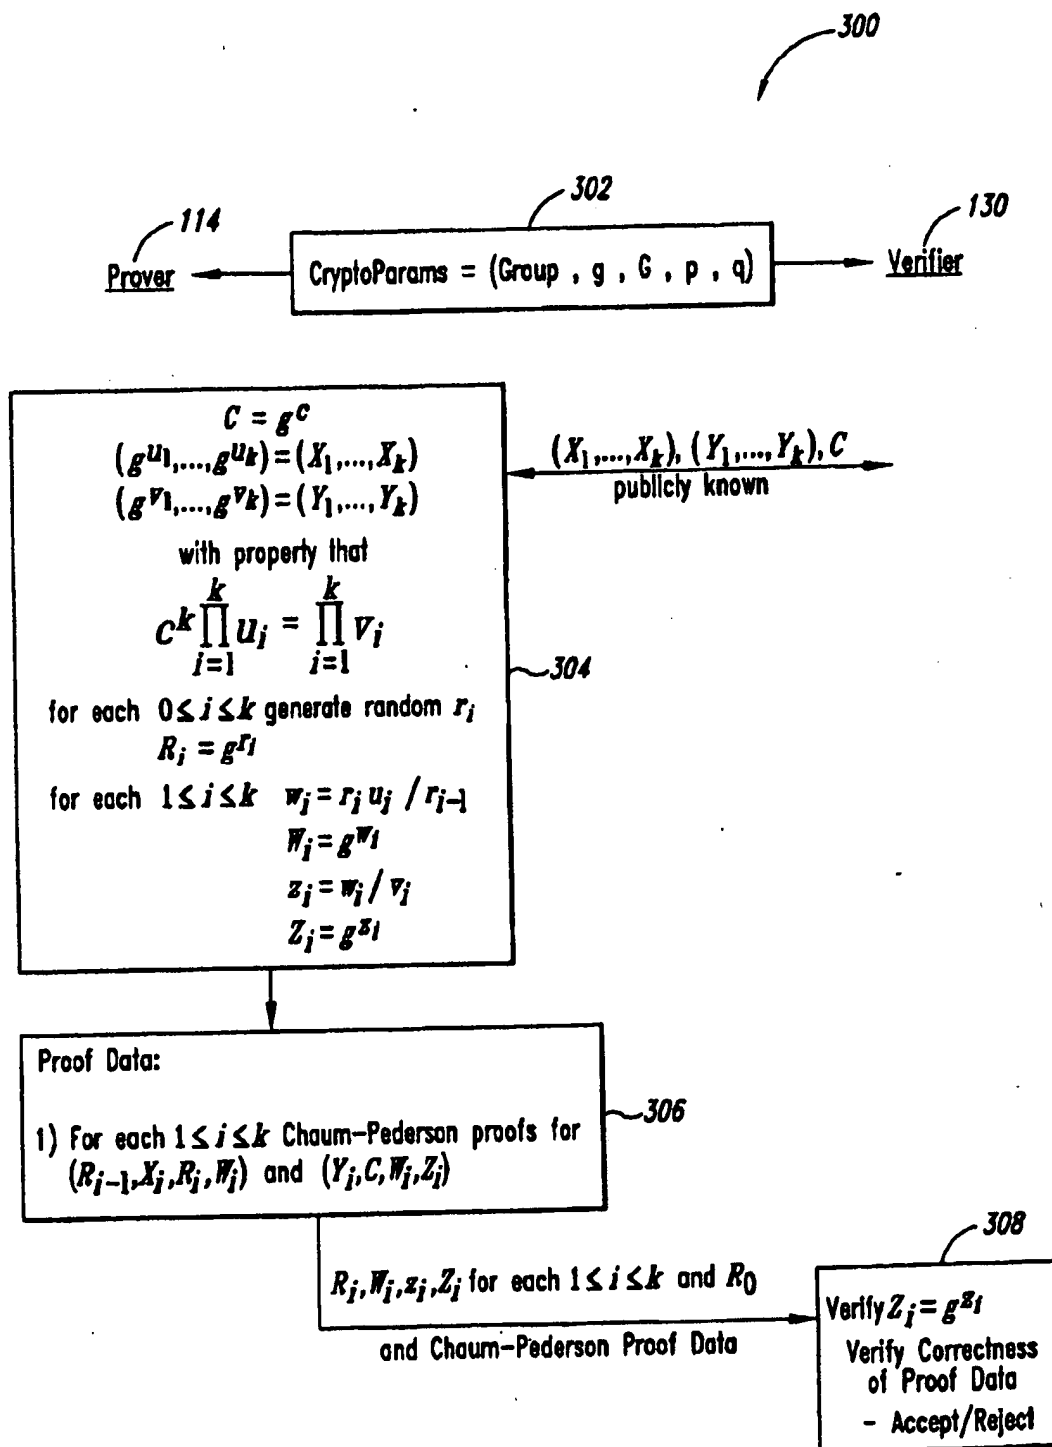 300
302
114
130
Prover
CryptoParams = (Group , g , G , p , q)
Verifier
C = g^c
(g^{u_1},...,g^{u_k})=(X_1,...,X_k)
(g^{v_1},...,g^{v_k})=(Y_1,...,Y_k)
(X_1,...,X_k), (Y_1,...,Y_k), C
publicly known
with property that
c^k ∏_{i=1}^{k} u_i = ∏_{i=1}^{k} v_i
304
for each 0≤i≤k generate random r_i
R_i = g^{r_i}
for each 1≤i≤k w_i = r_i u_i / r_{i-1}
W_i = g^{w_i}
z_i = w_i / v_i
Z_i = g^{z_i}
Proof Data:
306
1) For each 1≤i≤k Chaum-Pederson proofs for
(R_{i-1},X_i,R_i,W_i) and (Y_i,C,W_i,Z_i)
308
R_i,W_i,z_i,Z_i for each 1≤i≤k and R_0
and Chaum-Pederson Proof Data
Verify Z_i = g^{z_i}
Verify Correctness
of Proof Data
- Accept/Reject